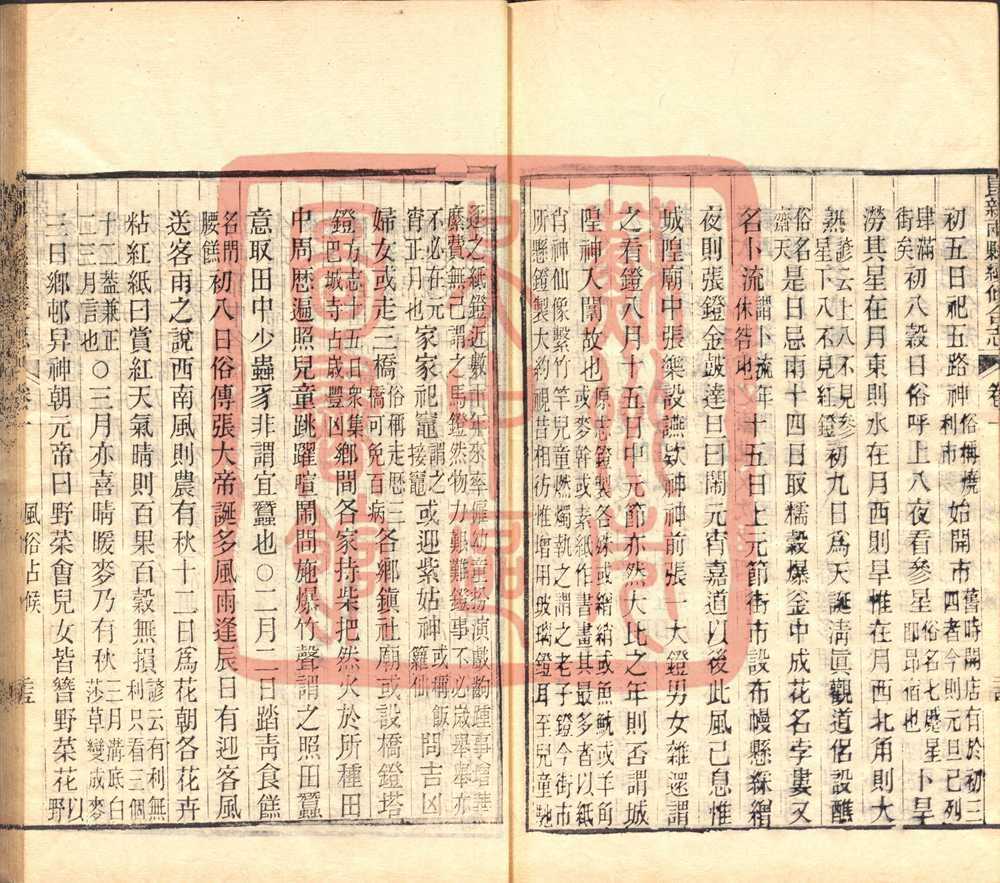 崑新兩縣續修合志　卷一
初五日祀五路神俗稱燒利市始開市舊時開店有於初三四者今則元旦已列
肆滿街矣初八穀日俗呼上八夜看參星俗名七簇星即昴宿也卜旱
澇其星在月東則水在月西則旱惟在月西北角則大
熟諺云上八不見參星下八不見紅鐙初九日爲天誕淸眞觀道侶設醮
俗名齋天是日忌雨十四日取糯穀爆釜中成花名孛婁又
名卜流謂卜流年休咎也十五日上元節街市設布幔懸綵繒
夜則張鐙金鼓達旦曰鬧元宵嘉道以後此風已息惟
城隍廟中張樂設讌欵神神前張一大鐙男女雜遝謂
之看鐙八月十五日中元節亦然大比之年則否謂城
隍神入闈故也原志鐙製各殊或繒綃或魚魫或羊角或麥幹或素紙作書畫其最多者以紙
肖神仙像繫竹竿兒童燃燭執之謂之老子鐙今街市所懸鐙製大約視昔相彷惟增用玻璃鐙耳至兒童馳
逐之紙鐙近數十年來率雇幼童扮演戲齣踵事增華縻費無已謂之馬鐙然物力艱難鐙事不必歲舉舉亦
不必在元宵正月也家家祀竈謂之接竈或迎紫姑神或稱飯籮仙問吉凶
婦女或走三橋俗稱走歷三橋可免百病各鄉鎭社廟或設橋鐙塔
鐙方志十五日衆集巴城寺占歲豐凶鄉間各家持柴把然火於所種田
中周厯遍照兒童跳躍喧鬧間施爆竹聲謂之照田蠶
意取田中少蟲豸非謂宜蠶也〇二月二日踏靑食餻
名閂腰餻初八日俗傳張大帝誕多風雨逢辰日有迎客風
送客雨之說西南風則農有秋十二日爲花朝各花卉
粘紅紙曰賞紅天氣晴則百果百穀無損諺云有利無利只看三個
十二蓋兼正二三月言也〇三月亦喜晴暖麥乃有秋三月溝底白莎草變成麥
三日鄉邨昇神朝元帝曰野菜會兒女皆簪野菜花以野
風俗占候